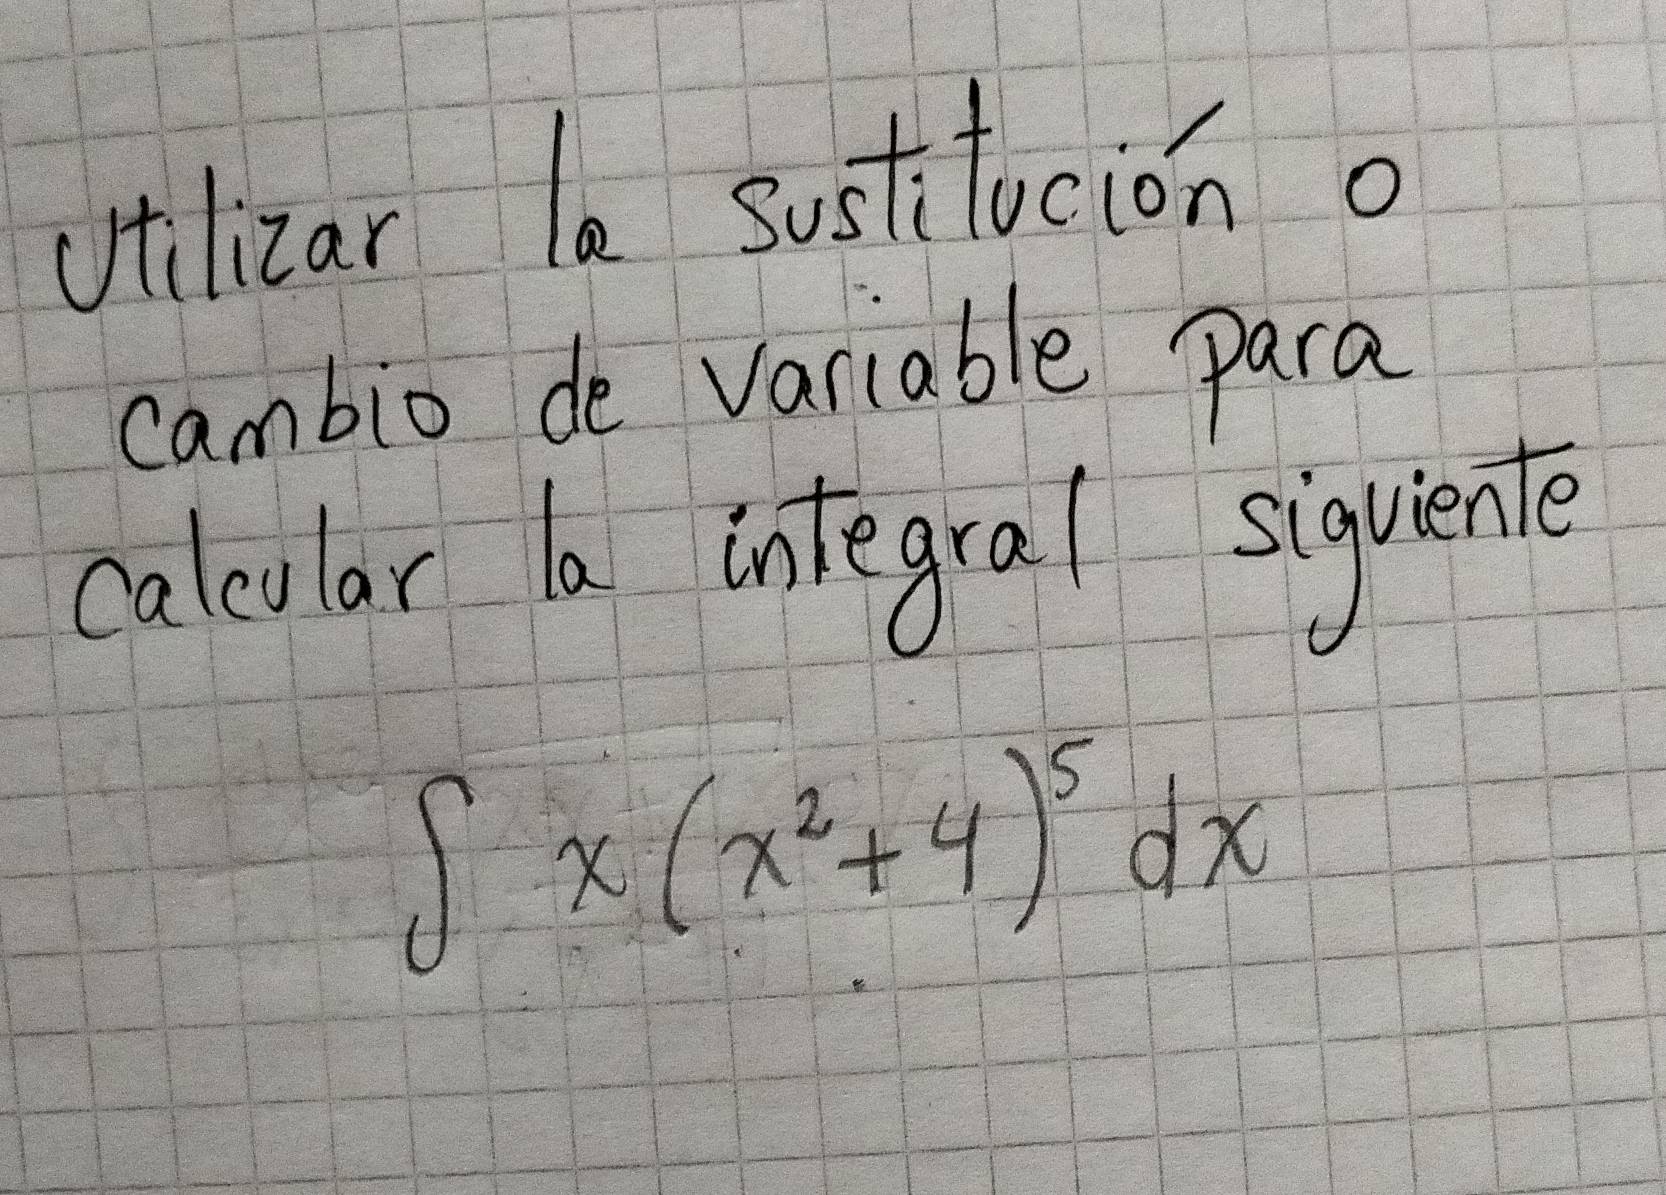 Utilizar la sustitución o
cambio de variable para
calcular la integral siguiente
∫ x(x²+4)⁵ dx